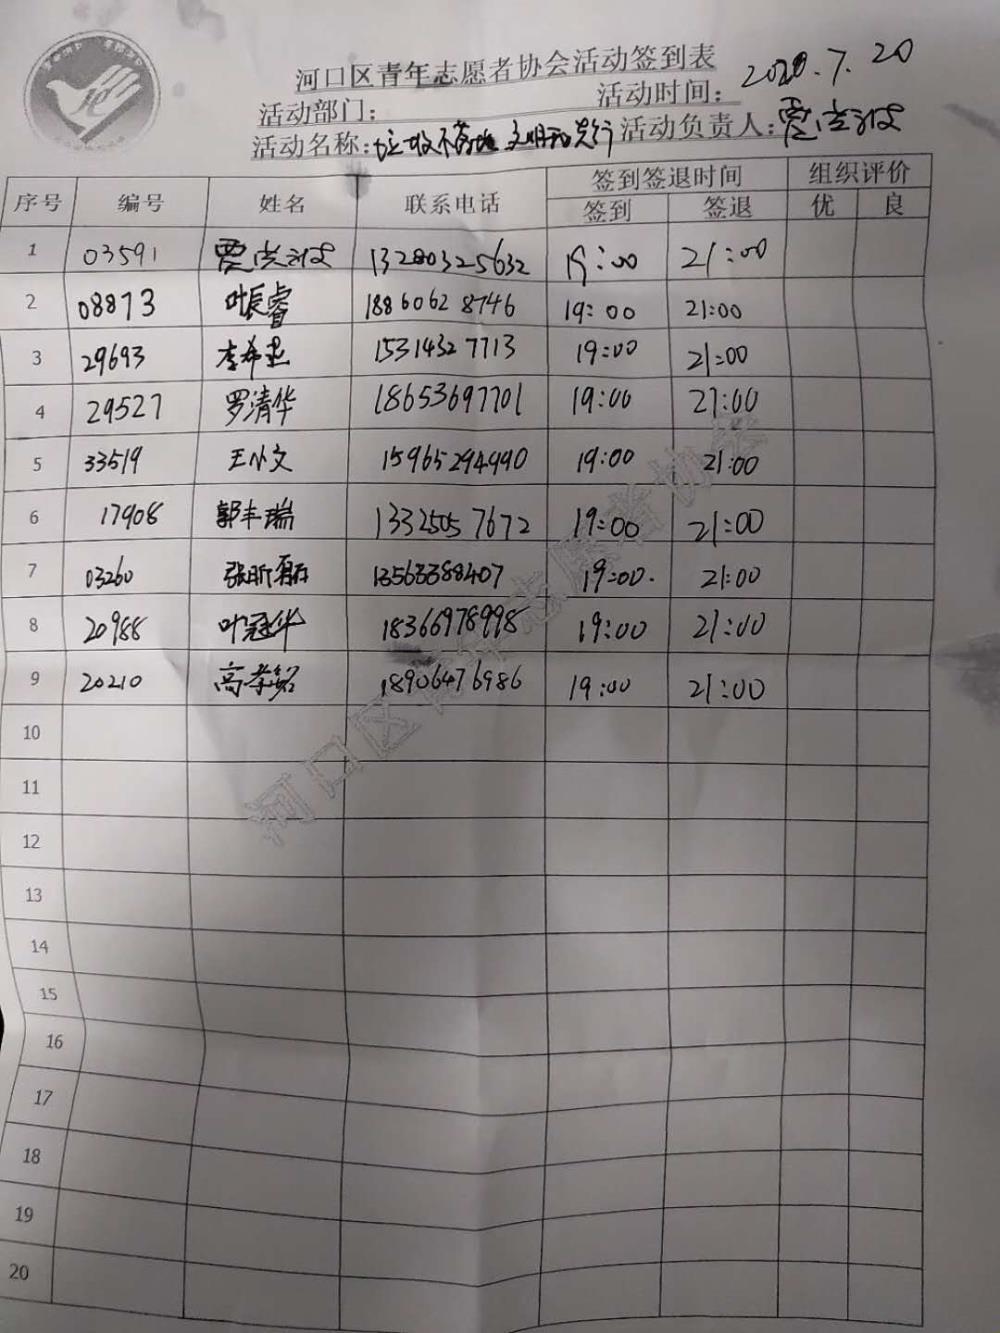 河口区青年志愿者协会活动签到表
活动部门： 活动时间： 2020.7.20
活动名称：垃圾不落地 文明 行 活动负责人：贾
序号 编号 姓名 联系电话 签到签退时间 组织评价
签到 签退 优 良
1 03591 贾 13280325632 19:00 21:00
2 08873 叶辰睿 18860628746 19:00 21:00
3 29693 李希 15314327713 19:00 21:00
4 29527 罗清华 18653697701 19:00 21:00
5 33519 王小文 15965294990 19:00 21:00
6 17908 郭丰瑞 13325057672 19:00 21:00
7 03260 张昕 13563388407 19:00. 21:00
8 20988 叶冠华 18366978998 19:00 21:00
9 20210 高孝铭 18906476986 19:00 21:00
10
11
12
13
14
15
16
17
18
19
20
河口区青年志愿者协会